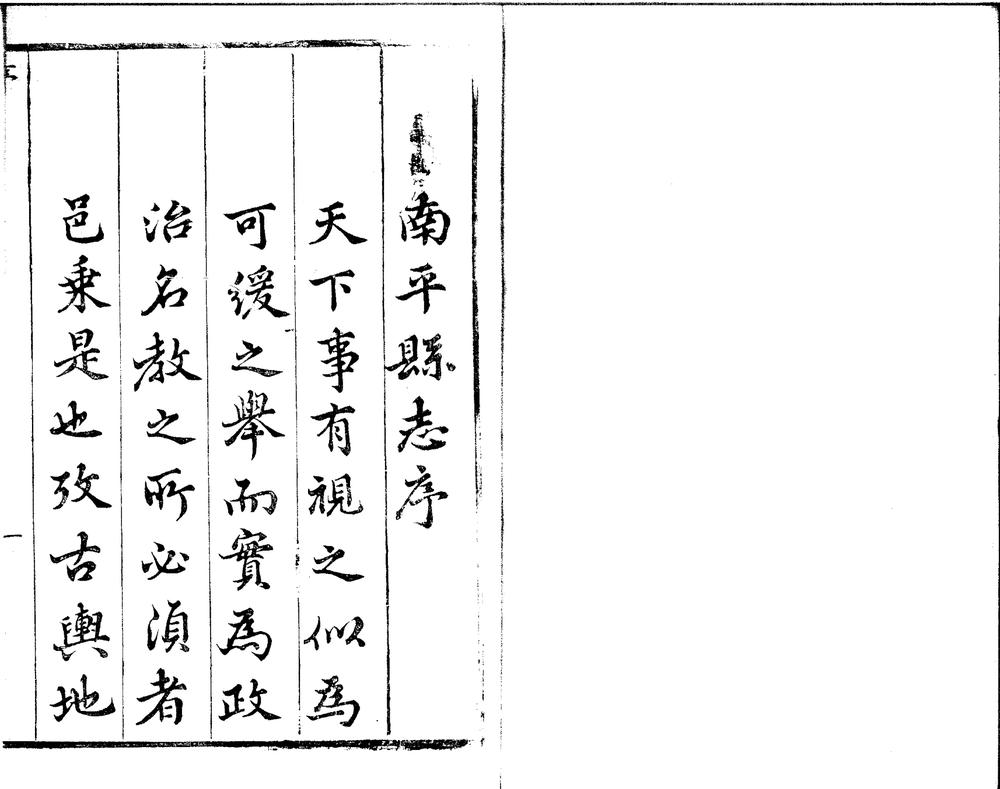 南平縣志序
天下事有視之似為
可緩之舉而實為政
治名教之所必湏者
邑乗是也攷古輿地
一